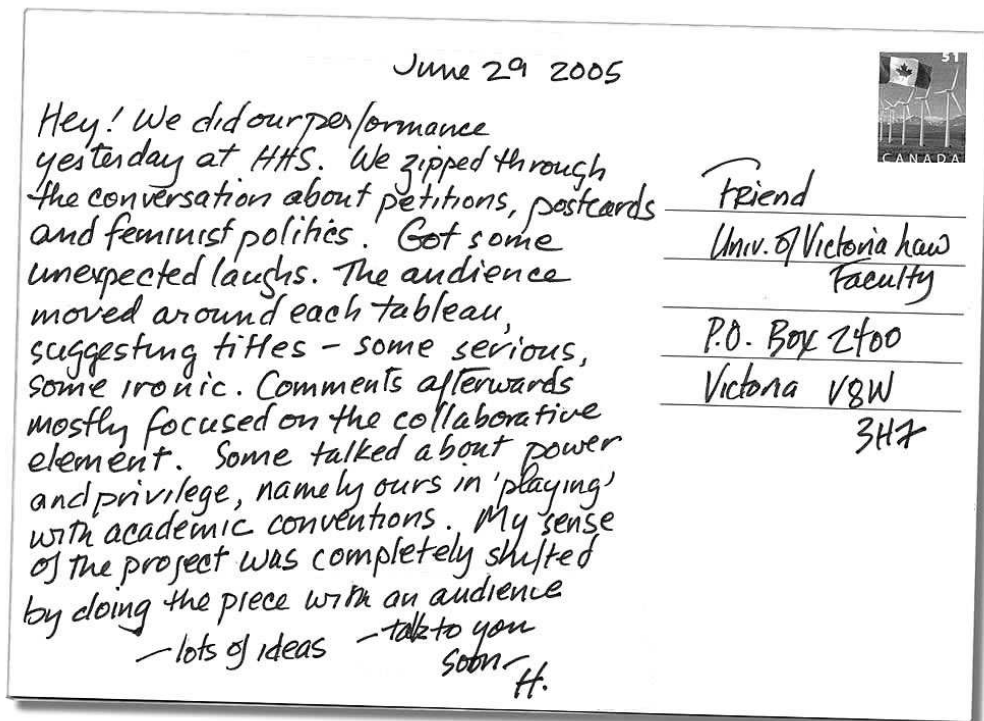 June 29 2005
51
CANADA
Hey! We did our performance
yesterday at HHS. We zipped through
the conversation about petitions, postcards
and feminist politics. Got some
unexpected laughs. The audience
moved around each tableau,
suggesting titles – some serious,
some ironic. Comments afterwards
mostly focused on the collaborative
element. Some talked about power
and privilege, namely ours in 'playing'
with academic conventions. My sense
of the project was completely shifted
by doing the piece with an audience
– lots of ideas – talk to you
soon –
H.
Friend
Univ. of Victoria Law
Faculty
P.O. Box 2400
Victoria V8W
3H7